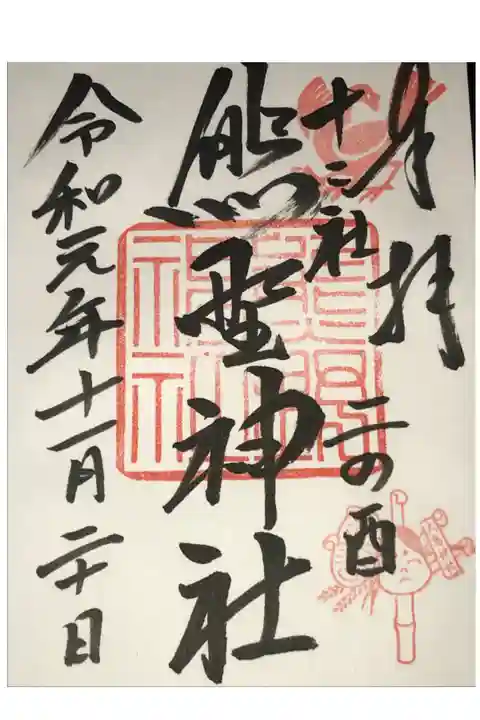 奉拝
二の酉
十二社
熊野神社
令和元年十一月二十日